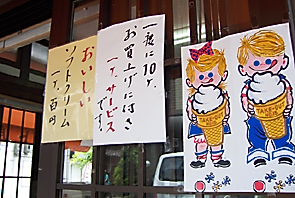 一度に10ヶ
お買上げに付き
一ヶサービス
です!
おいしい
ソフトクリーム
一ヶ百円